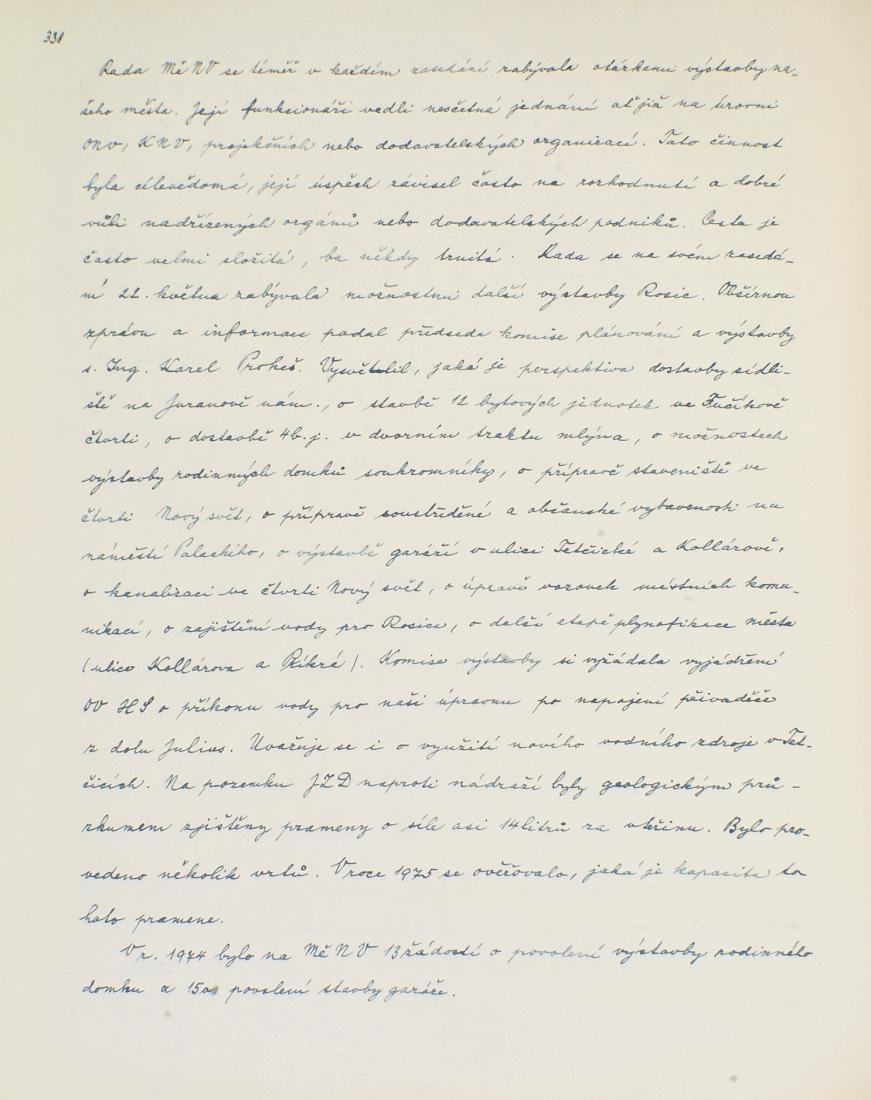 338
Rada MěNV se téměř v každém zasedání zabývala otázkami výstavby na-
šeho města. Její funkcionáři vedli nesčetná jednání ať již na úrovni
ONV, KNV, projekčních nebo dodavatelských organizací. Tato činnost
byla cílevědomá, její úspěch závisel často na rozhodnutí a dobré
vůli nadřízených orgánů nebo dodavatelských podniků. Cesta je
často velmi složitá, ba někdy trnitá. Rada se na svém zasedá-
ní 22. května zabývala možnostmi další výstavby Rosic. Obšírnou
zprávu a informaci podal předseda komise plánování a výstavby
s. Ing. Karel Prokeš. Vysvětlil, jaká je perspektiva dostavby sídli-
ště na Juranově nám., o stavbě 12 bytových jednotek ve Fučíkově
čtvrti, o dostavbě 4b.j. v dvorním traktu mlýna, o možnostech
výstavby rodinných domků soukromníky, o přípravě staveniště ve
čtvrti Nový svět, o přípravě soustředěné a občanské vybavenosti na
náměstí Palackého, o výstavbě garáží v ulici Tetčické a Kollárově,
o kanalizaci ve čtvrti Nový svět, o úpravě vozovek místních komu-
nikací, o zajištění vody pro Rosice, o další etapě plynofikace města
(ulice Kollárova a Příkrá). Komise výstavby si vyžádala vyjádření
OV HS o příkonu vody pro naši úpravnu po napojení přivaděče
z dolu Julius. Uvažuje se i o využití nového vodního zdroje v Tet-
čicích. Na pozemku JZD naproti nádraží byly geologickým prů-
zkumem zjištěny prameny o síle asi 14 litrů za vteřinu. Bylo pro-
vedeno několik vrtů. V roce 1975 se ověřovalo, jaká je kapacita to
hoto pramene.
V r. 1974 bylo na MěNV 13 žádostí o povolení výstavby rodinného
domku a 15 o povolení stavby garáže.